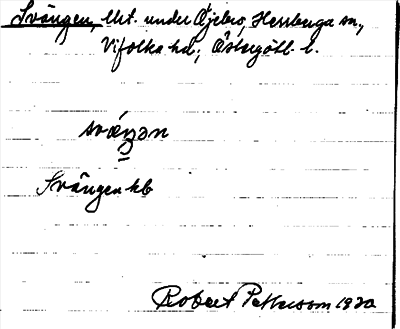 Svängen, lht. under Öjebro, Herrberga sn.,
Vifolka hd., Östergötl. l.
sväŋən
Svängen hb
Robert Pettersson 1920